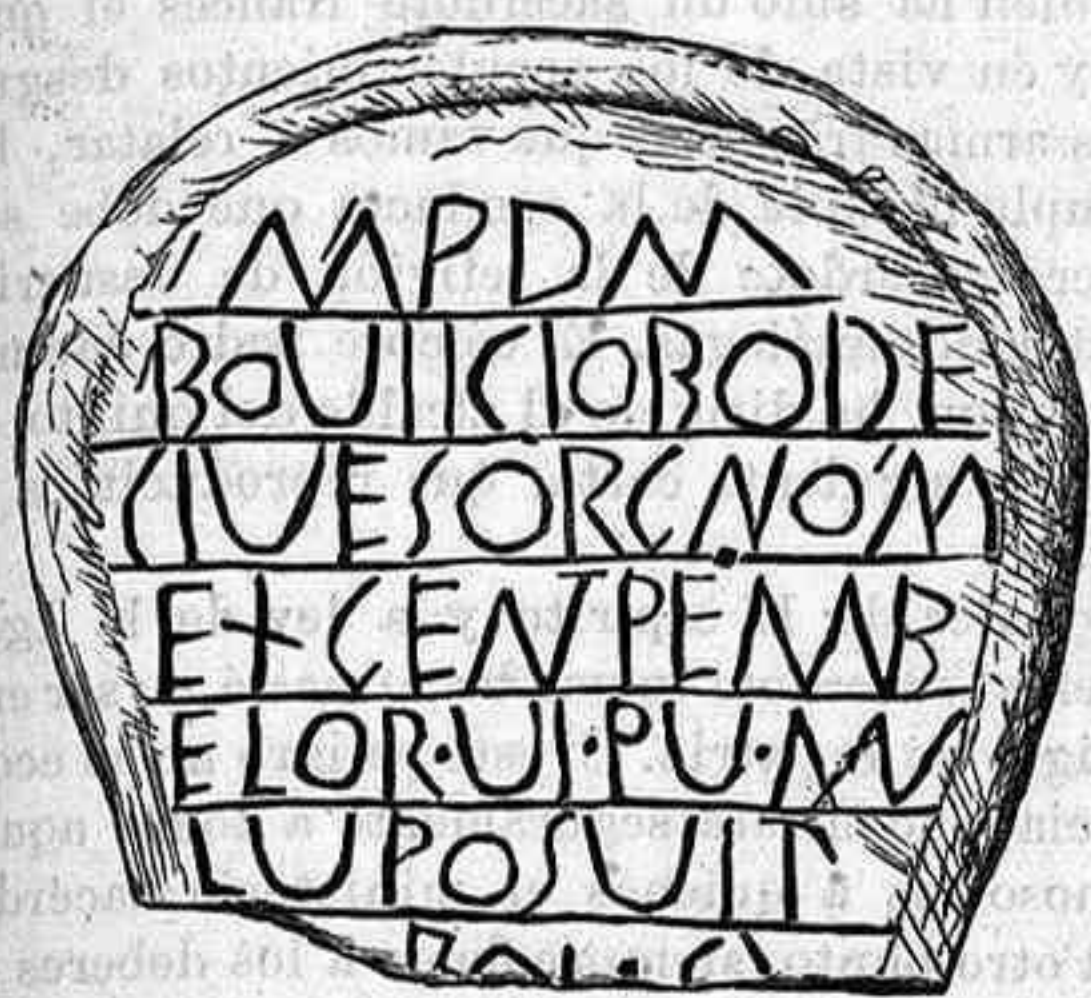 IMPDM
BOUIICIOBODE
CIUESORGNOM
EXCENTPEMB
ELOR·UI·PU·MV
LUPOSUIT